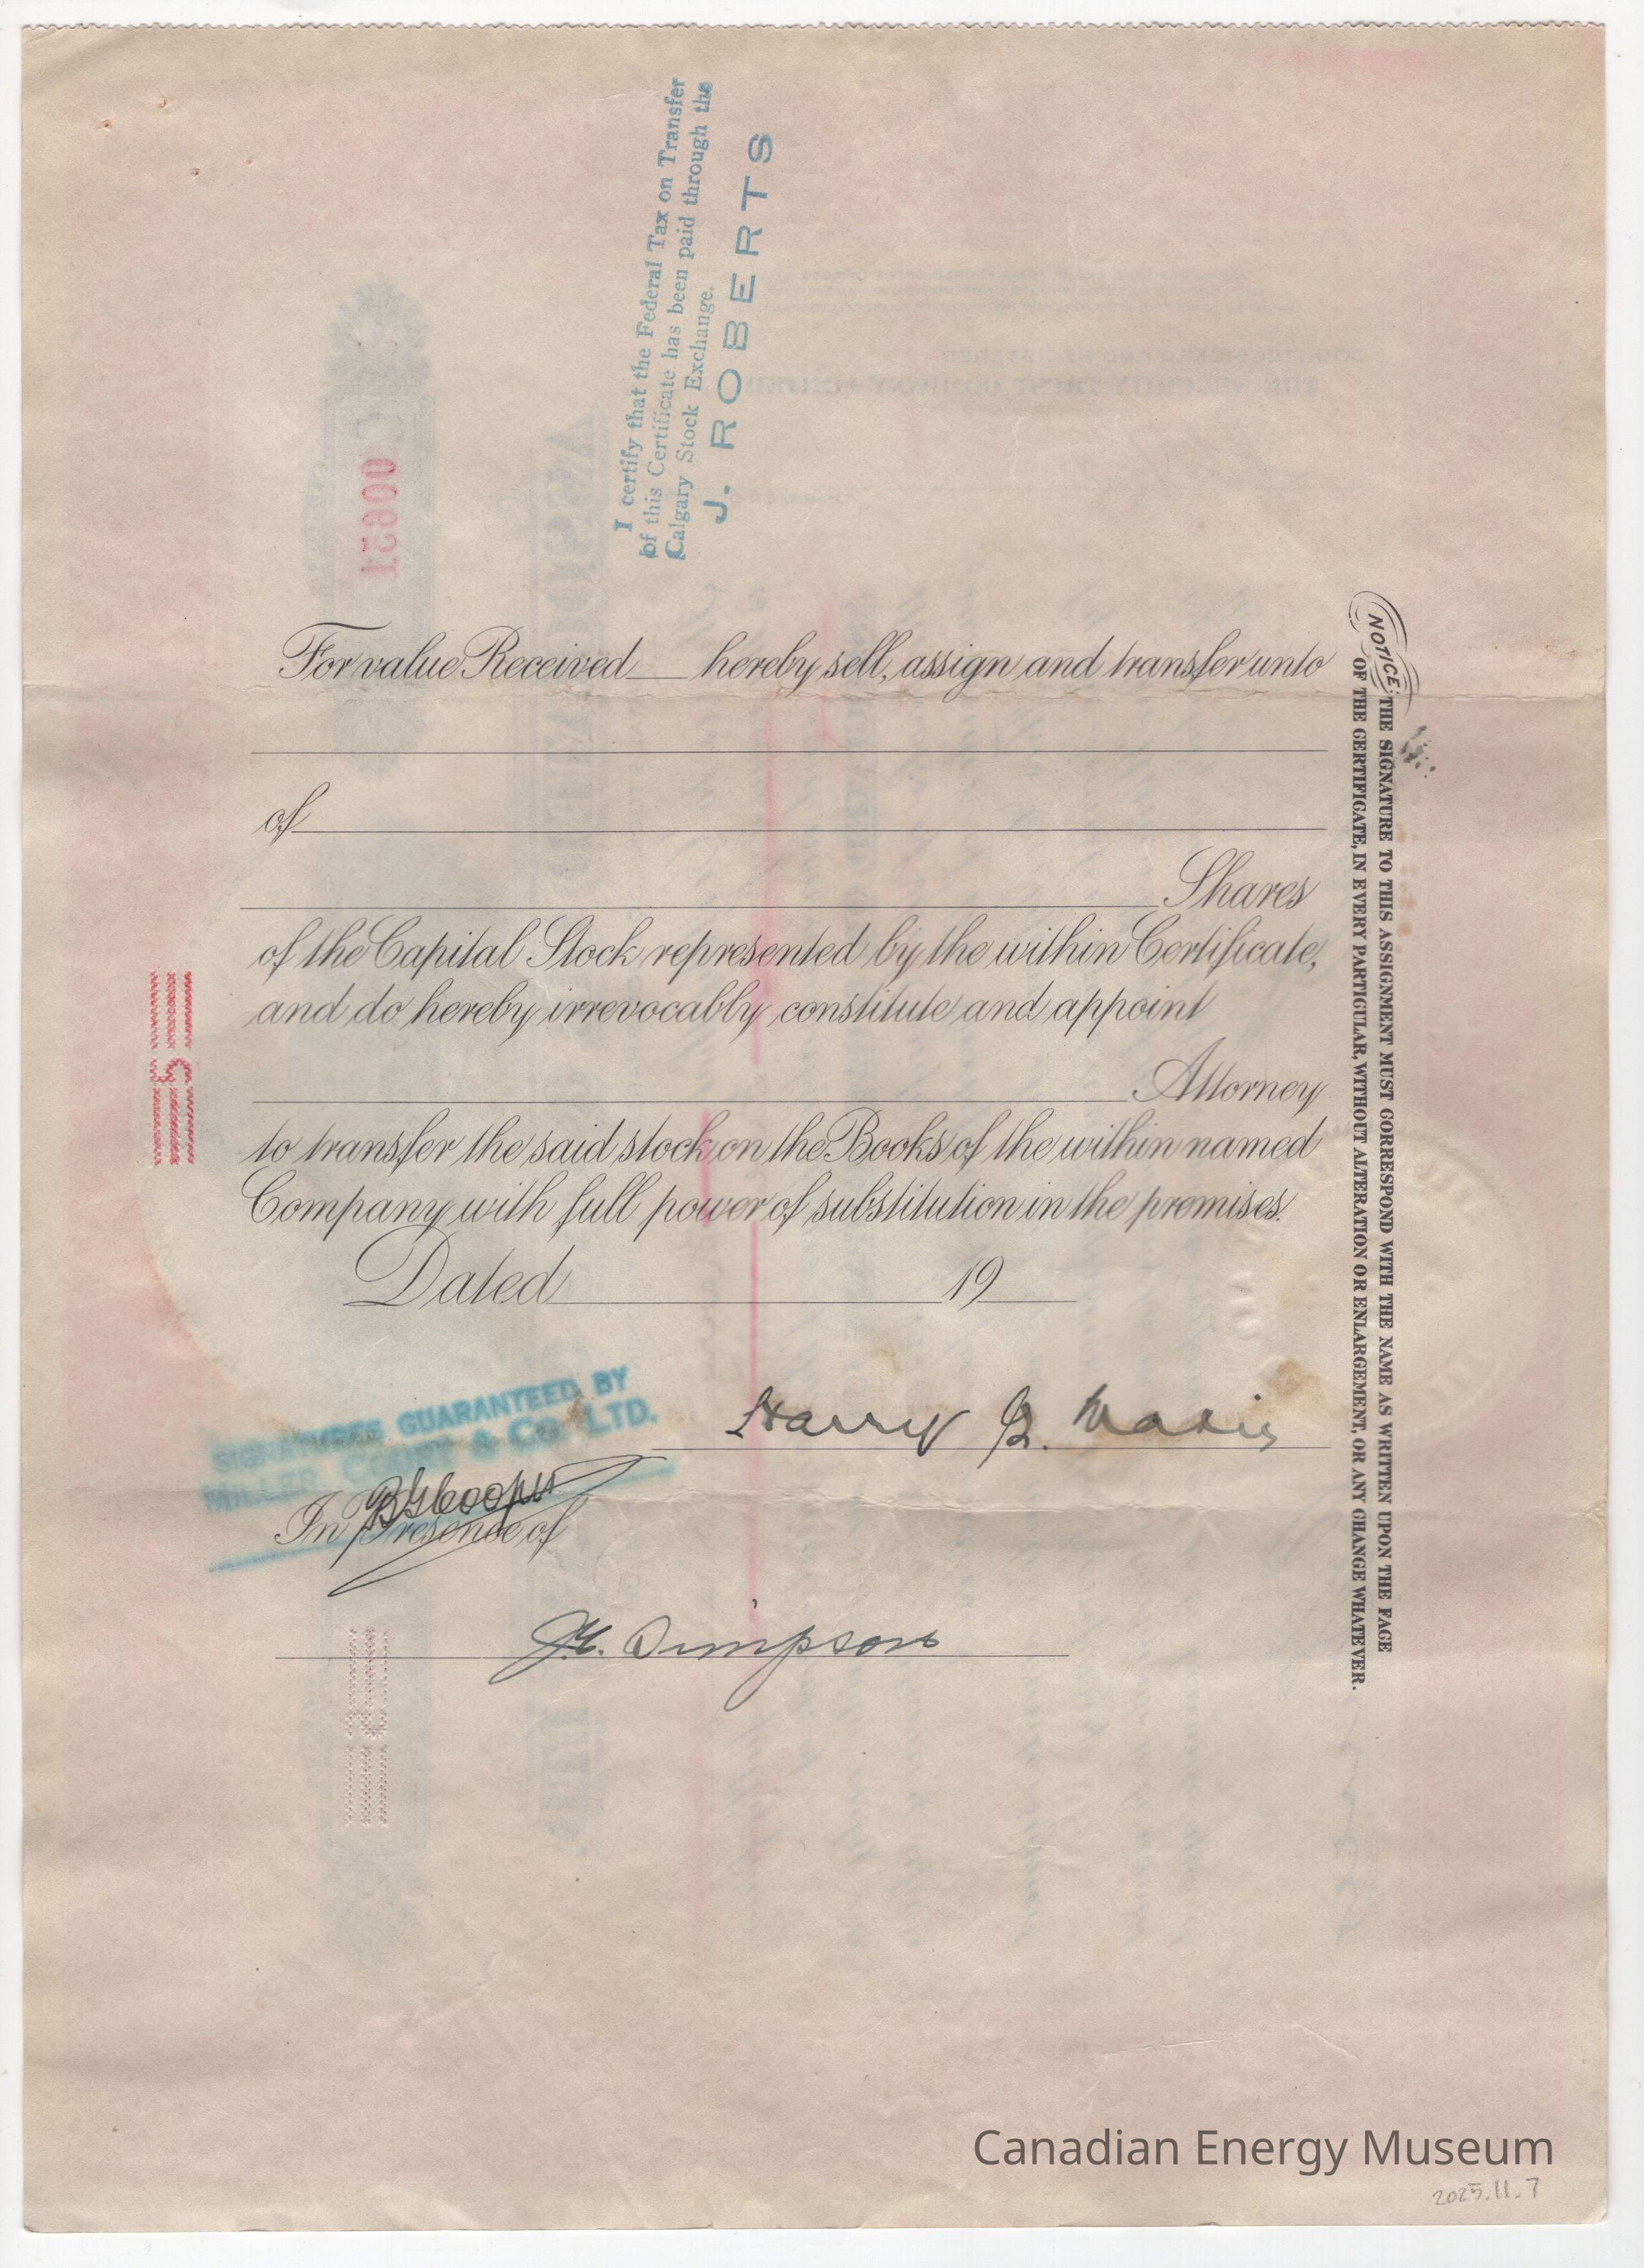 I certify that the Federal Tax on Transfer
of this Certificate has been paid through the
Calgary Stock Exchange.
J. ROBERTS
00621
For value Received hereby sell, assign and transfer unto
of
Shares
of the Capital Stock represented by the within Certificate,
and do hereby irrevocably constitute and appoint
Attorney
to transfer the said stock on the Books of the within named
Company with full power of substitution in the premises.
Dated 19
NOTICE: THE SIGNATURE TO THIS ASSIGNMENT MUST CORRESPOND WITH THE NAME AS WRITTEN UPON THE FACE
OF THE CERTIFICATE, IN EVERY PARTICULAR, WITHOUT ALTERATION OR ENLARGEMENT, OR ANY CHANGE WHATEVER.
SIGNATURES GUARANTEED BY
MILLER, & CO. LTD.
Harry
In Presence of
Simpson
Canadian Energy Museum
2025.11.7